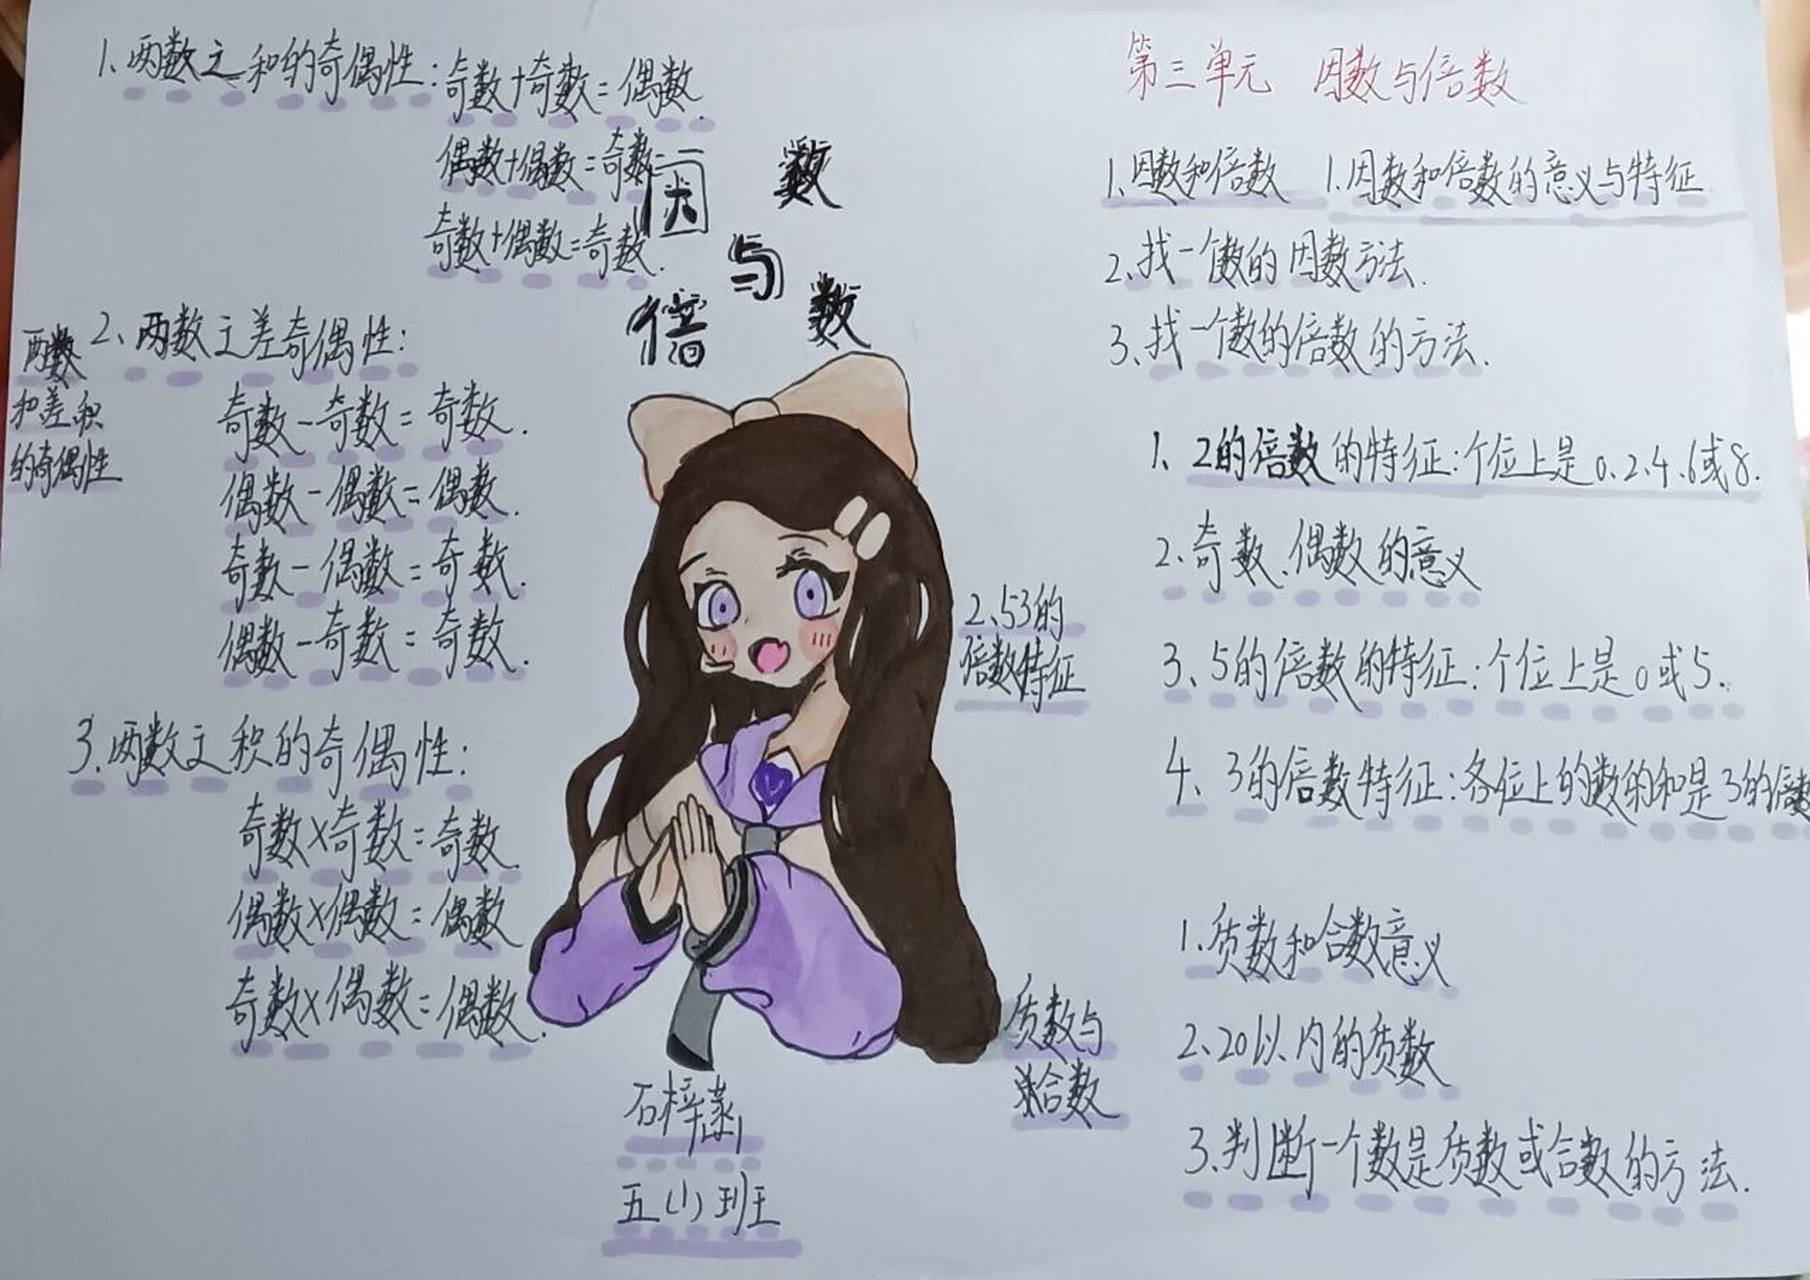 1、两数之和的奇偶性:奇数+奇数=偶数
偶数+偶数=奇数
奇数+偶数=奇数.
因数
与
倍数
两数
和差积
的奇偶性
2、两数之差奇偶性:
奇数-奇数=奇数.
偶数-偶数=偶数.
奇数-偶数=奇数.
偶数-奇数=奇数.
3.两数之积的奇偶性:
奇数×奇数=奇数.
偶数×偶数=偶数
奇数×偶数=偶数.
石梓菡
五(1)班
第三单元 因数与倍数
1、因数和倍数 1.因数和倍数的意义与特征
2、找一个数的因数方法.
3、找一个数的倍数的方法.
2、53的
倍数特征
1、2的倍数的特征:个位上是0.2.4.6或8.
2.奇数、偶数的意义
3、5的倍数的特征:个位上是0或5.
4、3的倍数特征:各位上的数的和是3的倍数
质数与
合数
1.质数和合数意义
2、20以内的质数
3、判断一个数是质数或合数的方法.